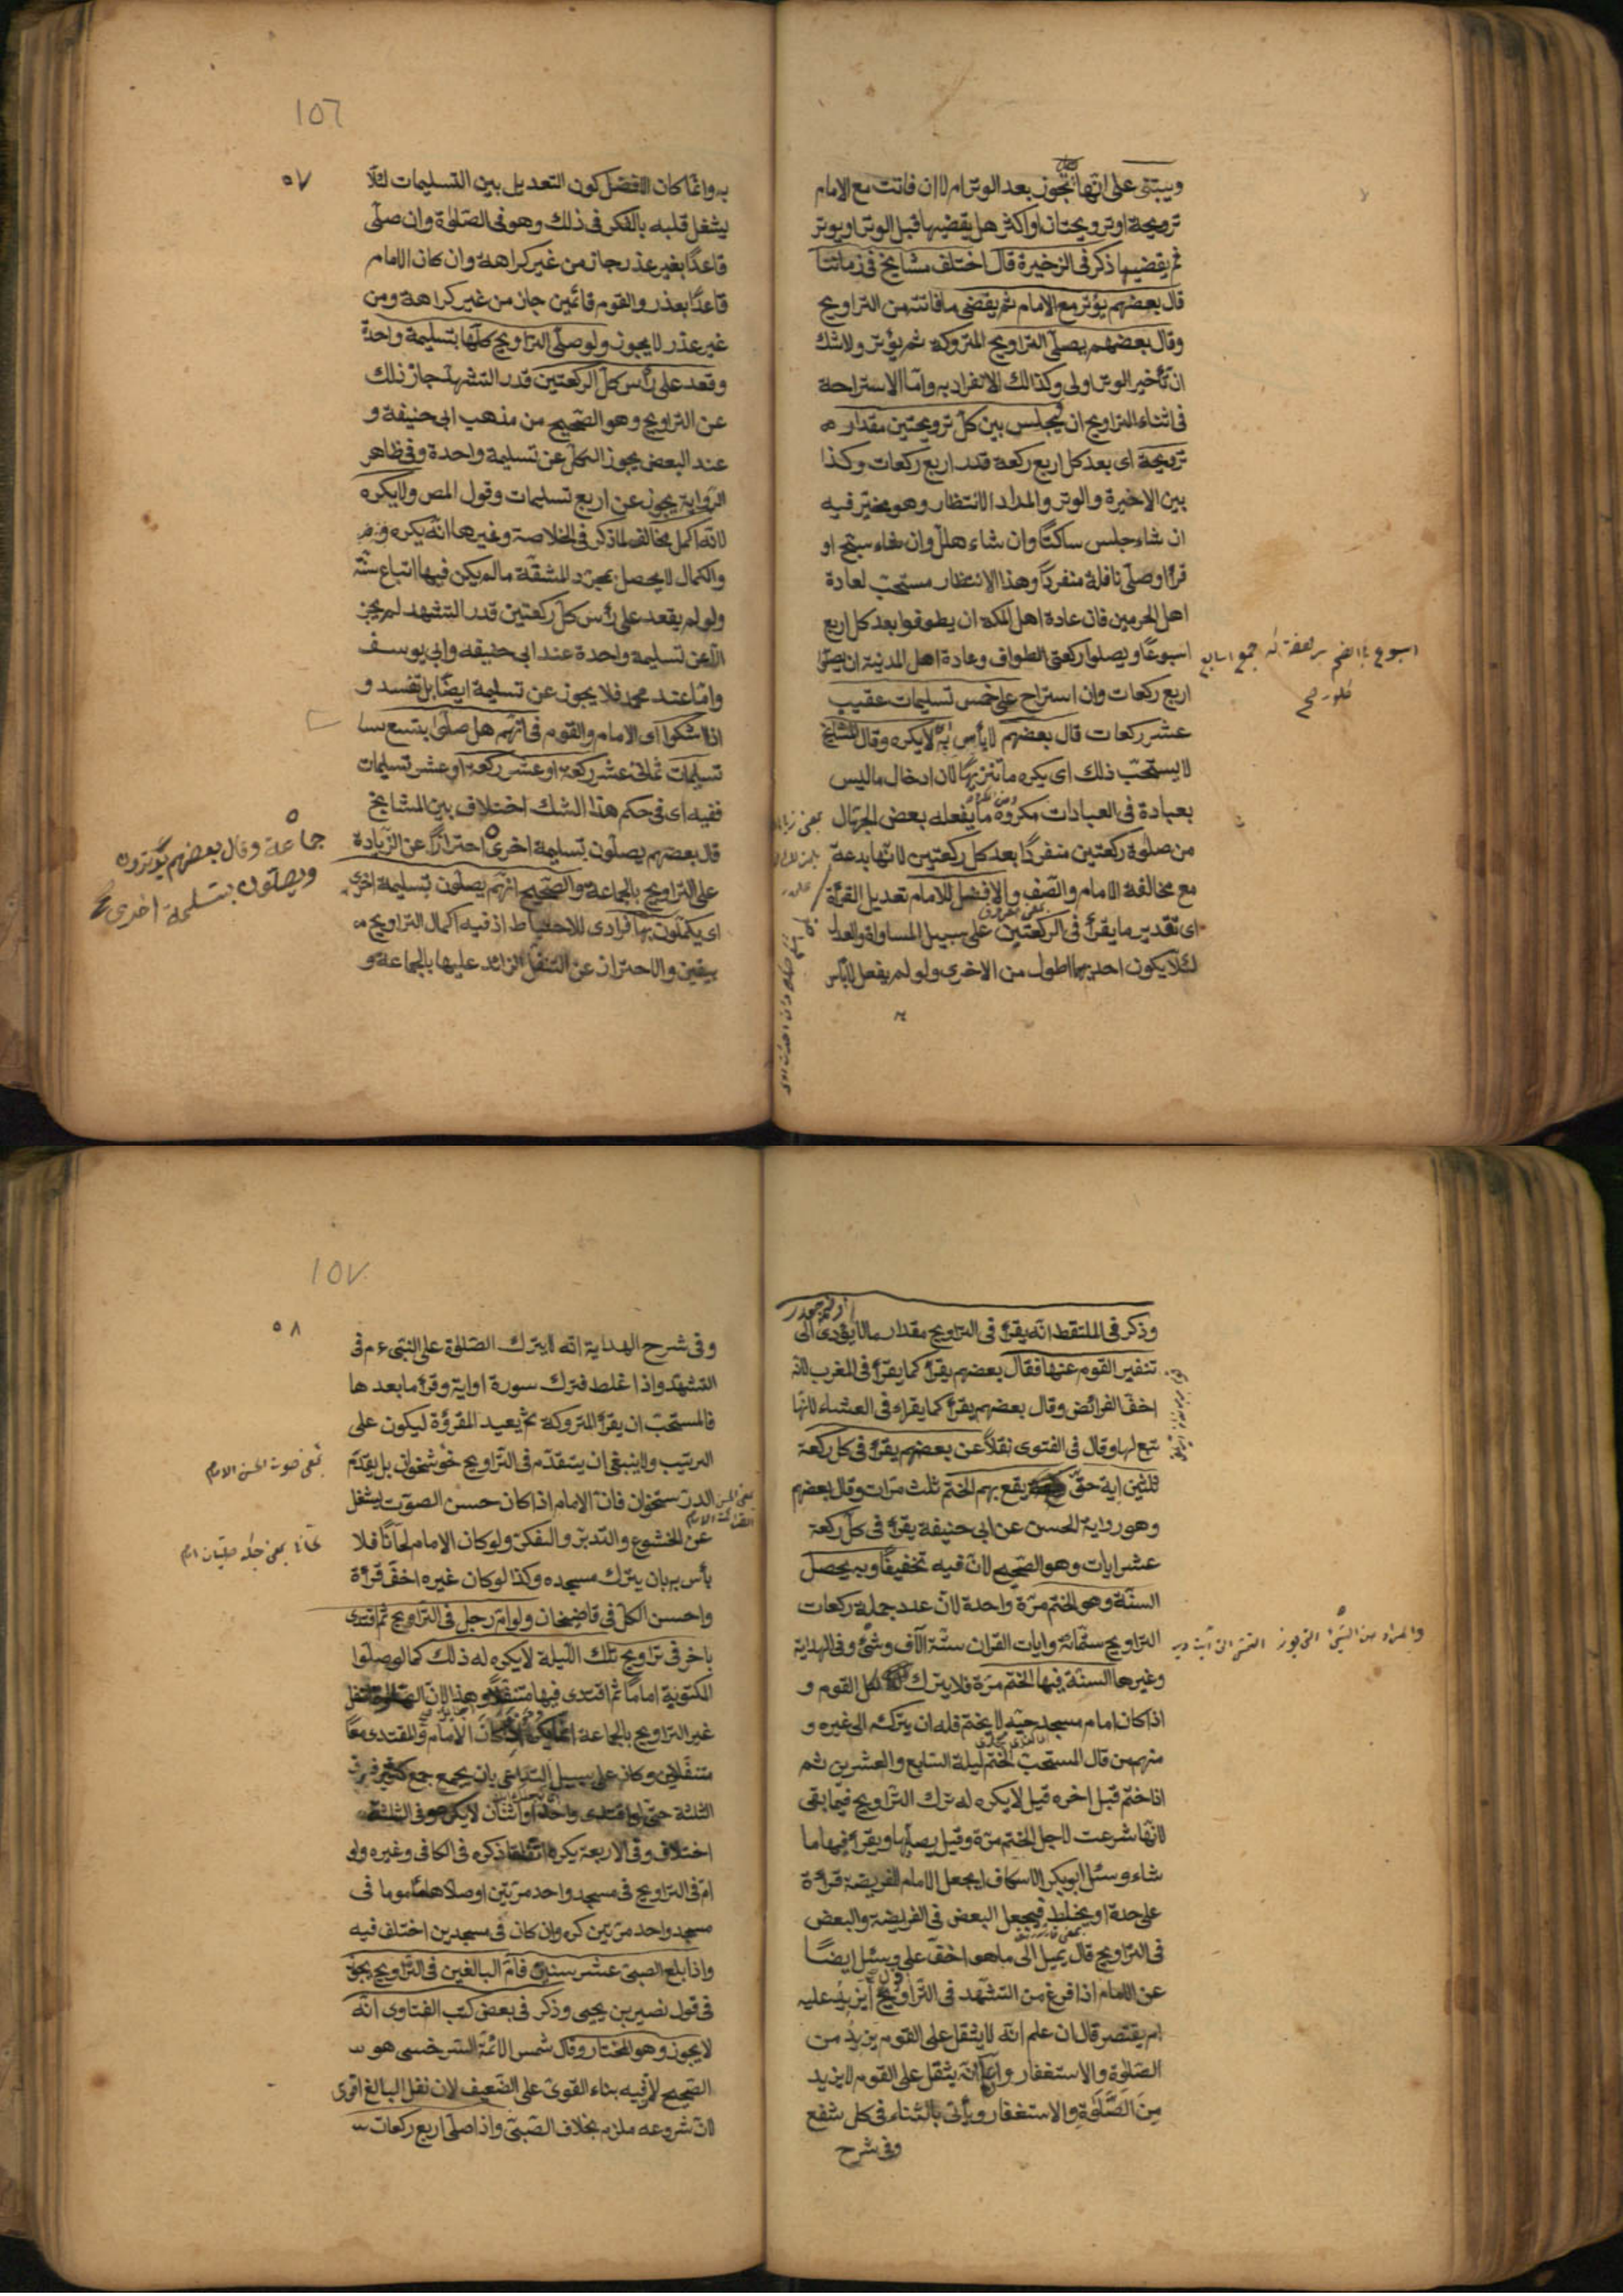 ويبتنى على انها تجوز بعد الوتر ام لا ان فاتت مع الامام
ترويحة او ترويحتان او اكثر هل يقضيها قبل الوتر او يوتر
ثم يقضيها ذكر فى الزخيرة قال اختلف مشايخ فى زماننا
قال بعضهم يؤتر مع الامام ثم يقضى ما فاتته من التراويح
وقال بعضهم يصلى التراويح المتروكة ثم يؤتر ولا شك
ان تأخير الوتر اولى وكذالك الانفراد به واما الاستراحة
فى اثناء التراويح ان يجلس بين كل ترويحتين مقدار
ترويحة اى بعد كل اربع ركعة قدر اربع ركعات وكذا
بين الاخيرة والوتر والمراد الانتظار وهو مخير فيه
ان شاء جلس ساكتا وان شاء هلل وان شاء سبح او
قرأ او صلى نافلة منفردا وهذا الانتظار مستحب لعادة
اهل الحرمين فان عادة اهل المكه ان يطوفوا بعد كل اربع
اسبوعا ويصلوا ركعتى الطواف وعادة اهل المدنية ان يصلوا
اربع ركعات وان استراح على خمس تسليمات عقيب
عشر ركعات قال بعضهم لا بأس به لا يكره وقال المشايخ
لا يستحب ذلك اى يكره ما تنزيها لان ادخال ما ليس
بعبادة فى العبادات مكروه ما يفعله بعض الجهال
من صلوة ركعتين منفردا بعد كل ركعتين لانها بدعة
مع مخالفة الامام والصف والافضل للامام تعديل القرأة
اى تقدير ما يقرأ فى الركعتين على سبيل المساواة والعدل
لئلا يكون احديهما اطول من الاخرى ولو لم يفعل لا بأس
١٥٦
٥٧
به وانما كان الافضل كون التعديل بين التسليمات لئلا
يشغل قلبه بالفكر فى ذلك وهو فى الصلوة وان صلى
قاعدا بغير عذر جاز من غير كراهة وان كان الامام
قاعدا بعذر والقوم قائمين جاز من غير كراهة ومن
غير عذر لا يجوز ولو صلى التراويح كلها بتسليمة واحدة
وقعد على رأس كل الركعتين قدر التشهد جاز ذلك
عن التراويح وهو الصحيح من مذهب ابى حنيفة و
عند البعض يجوز الكل عن تسليمة واحدة وفى ظاهر
الرواية يجوز عن اربع تسليمات وقول المص ولا يكره
لانه اكمل مخالف لما ذكر فى الخلاصة وغيرها انه يكره
والكمال لا يحصل بمجرد المشقة ما لم يكن فيها اتباع سنة
ولو لم يقعد على رأس كل ركعتين قدر التشهد لم يجز
الا عن تسليمة واحدة عند ابى حنيفه وابى يوسف
واما عند محمد فلا يجوز عن تسليمة ايضا بل تفسد و
اذا شكوا اى الامام والقوم فى انهم هل صلوا بتسع
تسليمات ثمانى عشر ركعة او عشر ركعة او عشر تسليمات
ففيه اى فى حكم هذا الشك اختلاف بين المشايخ
قال بعضهم يصلون بتسليمة اخرى احترازا عن الزيادة
على التراويح بالجماعة والصحيح انهم يصلون بتسليمة اخرى
اى يكملون بها فرادى للاحتياط اذ فيه اكمال التراويح
بيقين والاحتراز عن التنفل الزائد عليها بالجماعة و
جماعة وقال بعضهم يوترون
ويصلون بتسليمة اخرى
وذكر فى الملتقط انه يقرأ فى التراويح مقدار ما لا يؤدى الى
تنفير القوم عنها فقال بعضهم يقرأ كما يقرأ فى المغرب لانه
اخف الفرائض وقال بعضهم يقرأ كما يقراء فى العشاء لانها
تبع لها وقال فى الفتوى نقلا عن بعضهم يقرأ فى كل ركعة
ثلثين اية حق يقع بهم الختم ثلث مرات وقال بعضهم
وهو رواية الحسن عن ابى حنيفة يقرأ فى كل ركعة
عشر ايات وهو الصحيح لان فيه تخفيفا وبه يحصل
السنة وهو الختم مرة واحدة لان عدد جملة ركعات
التراويح ستمائة وايات القران ستة الآف وشئ وفى الهداية
وغيرها السنة فيها الختم مرة فلا يترك لكسل القوم و
اذا كان امام مسجد حيه لا يختم فله ان يترك الى غيره و
منهم من قال المستحب الختم ليلة السابع والعشرين ثم
اذا ختم قبل اخره قيل لا يكره له ترك التراويح فيما بقى
لانها شرعت لاجل الختم مرة وقيل يصليها ويقرأ فيها ما
شاء وسئل ابو بكر الاسكاف ايجعل الامام الفريضة قرأة
على حدة او يخلط فيجعل البعض فى الفريضة والبعض
فى التراويح قال يميل الى ما هو اخف على وسئل ايضا
عن الامام اذا فرغ من التشهد فى التراويح أيزيد عليه
ام يقتصر قال ان علم انه لا يثقل على القوم يزيد من
الصلوة والاستغفار وان علم انه يثقل على القوم لا يزيد
من الصلوة والاستغفار ويأتى بالثناء فى كل شفع
وفى شرح
١٥٧
٥٨
وفى شرح الهداية انه لا يترك الصلوة على النبى ع م فى
التشهد واذا غلط فترك سورة او اية وقرأ ما بعدها
فالمستحب ان يقرأ المتروكة ثم يعيد المقروة ليكون على
الترتيب ولا ينبغى ان يتقدم فى التراويح خوشخوان بل يقدم
الدرستخوان فان الامام اذا كان حسن الصوت يشغل
عن الخشوع والتدبر والتفكر ولو كان الامام لحانا فلا
بأس به بان يترك مسجده وكذا لو كان غيره اخف قرأة
واحسن الكل فى قاضيخان ولو ام رجل فى التراويح ثم اقتدى
باخر فى تراويح تلك الليلة لا يكره له ذلك كما لو صلوا
المكتوبة اماما ثم اقتدى فيها متنفلا وهذا لان
غير التراويح بالجماعة انما يكره اذا كان الامام والمقتدى معا
متنفلين وكان على سبيل التداعى بان يجمع جمع كثير فوق
الثلثة حتى لو اقتدى واحد او اثنان لا يكره وفى الثلثة
اختلاف وفى الاربعة يكره اتفاقا ذكره فى الكافى وغيره ولو
ام فى التراويح فى مسجد واحد مرتين او صلاها مأموما فى
مسجد واحد مرتين كره وان كان فى مسجدين اختلف فيه
واذا بلغ الصبى عشر سنين فأم البالغين فى التراويح يجوز
فى قول نصير بن يحيى وذكر فى بعض كتب الفتاوى انه
لا يجوز وهو المختار وقال شمس الائمة السرخسى هو
الصحيح لان فيه بناء القوى على الضعيف لان نفل البالغ اقوى
لان شروعه ملزم بخلاف الصبى واذا صلى اربع ركعات